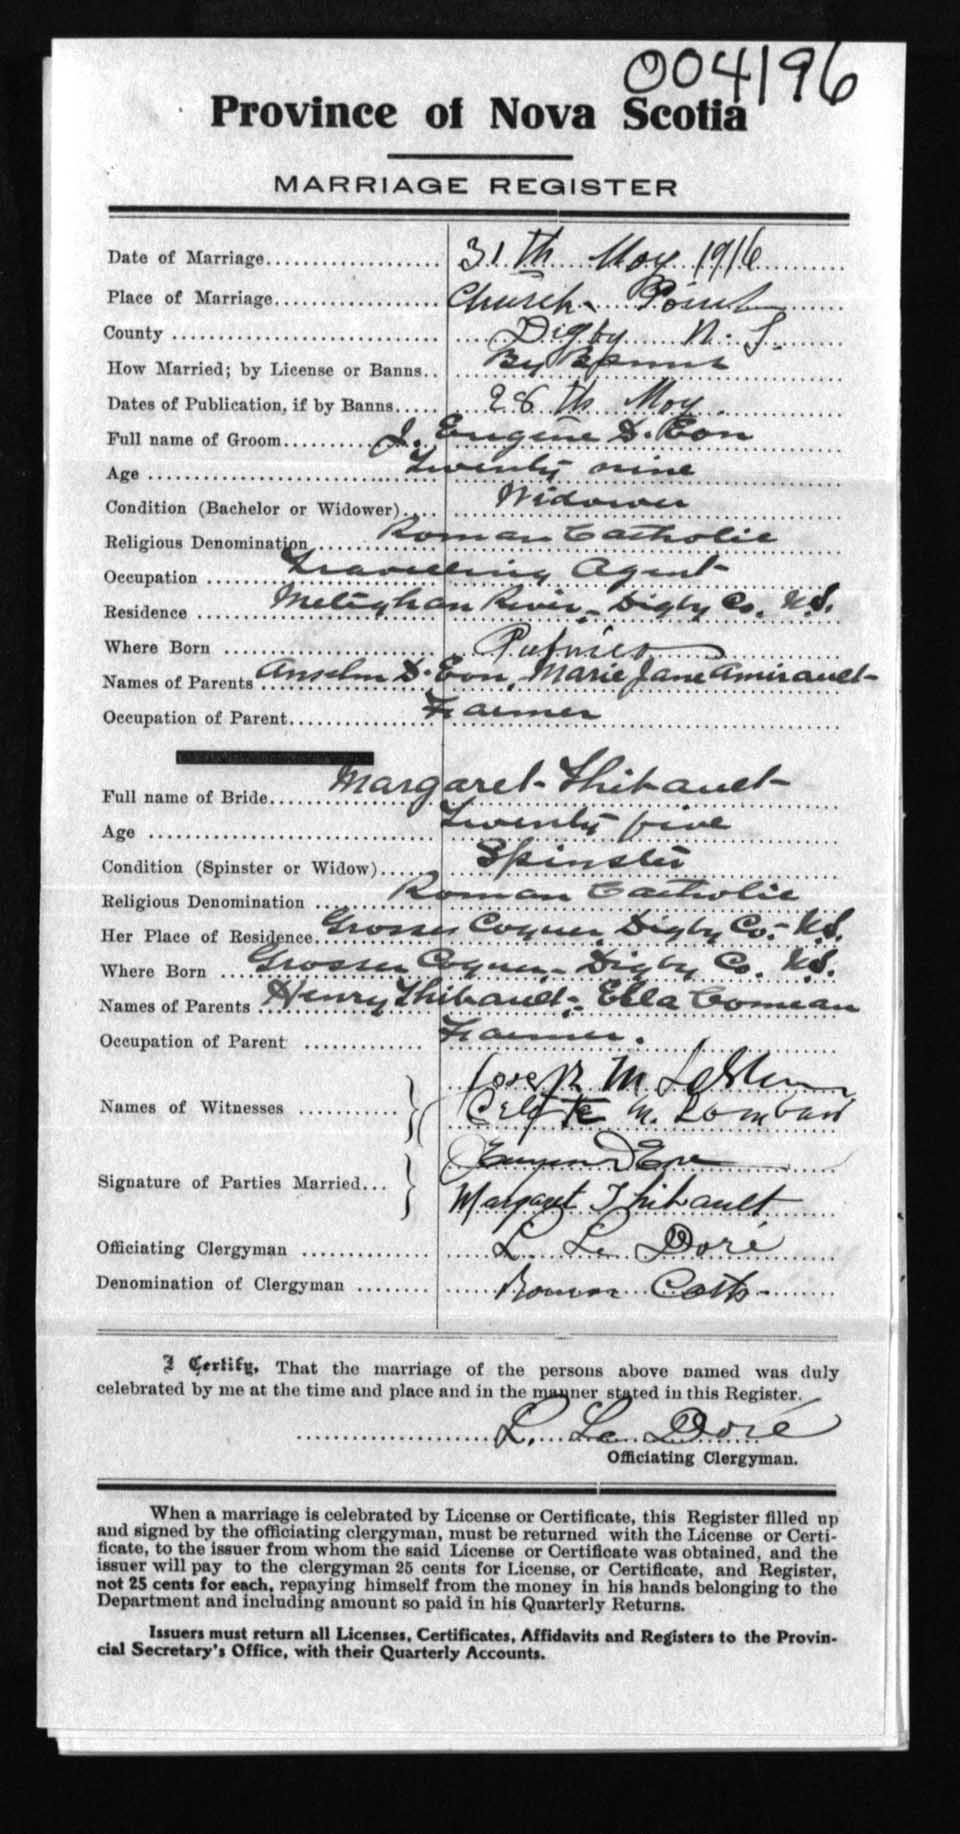 004196
Province of Nova Scotia
MARRIAGE REGISTER
Date of Marriage 31 th May 1916
Place of Marriage Church Point
County Digby N. S.
How Married; by License or Banns By Banns
Dates of Publication, if by Banns 28 th May.
Full name of Groom J. Eugene D. Eon
Age Twenty nine
Condition (Bachelor or Widower) Widower
Religious Denomination Roman Catholic
Occupation Travelling Agent
Residence Meteghan River, Digby Co. N.S.
Where Born Pubnico
Names of Parents Anselm D. Eon, Marie Jane Amirault
Occupation of Parent Farmer
Full name of Bride Margaret Thibault
Age Twenty five
Condition (Spinster or Widow) Spinster
Religious Denomination Roman Catholic
Her Place of Residence Grosses Coques, Digby Co. N.S.
Where Born Grosses Coques, Digby Co. N.S.
Names of Parents Henry Thibault, Ella Comeau
Occupation of Parent Farmer.
Names of Witnesses Joseph M
M. Lombard
Signature of Parties Married
Margaret Thibault
Officiating Clergyman L. Le Doré
Denomination of Clergyman Roman Cath
I Certify, That the marriage of the persons above named was duly
celebrated by me at the time and place and in the manner stated in this Register.
L. Le Doré
Officiating Clergyman.
When a marriage is celebrated by License or Certificate, this Register filled up
and signed by the officiating clergyman, must be returned with the License or Certi-
ficate, to the issuer from whom the said License or Certificate was obtained, and the
issuer will pay to the clergyman 25 cents for License, or Certificate, and Register,
not 25 cents for each, repaying himself from the money in his hands belonging to the
Department and including amount so paid in his Quarterly Returns.
Issuers must return all Licenses, Certificates, Affidavits and Registers to the Provin-
cial Secretary's Office, with their Quarterly Accounts.